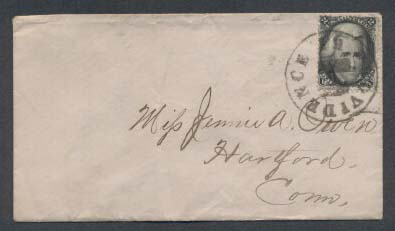 2 2
PROVIDENCE
Miss Jennie A. Owen
Hartford,
Conn.